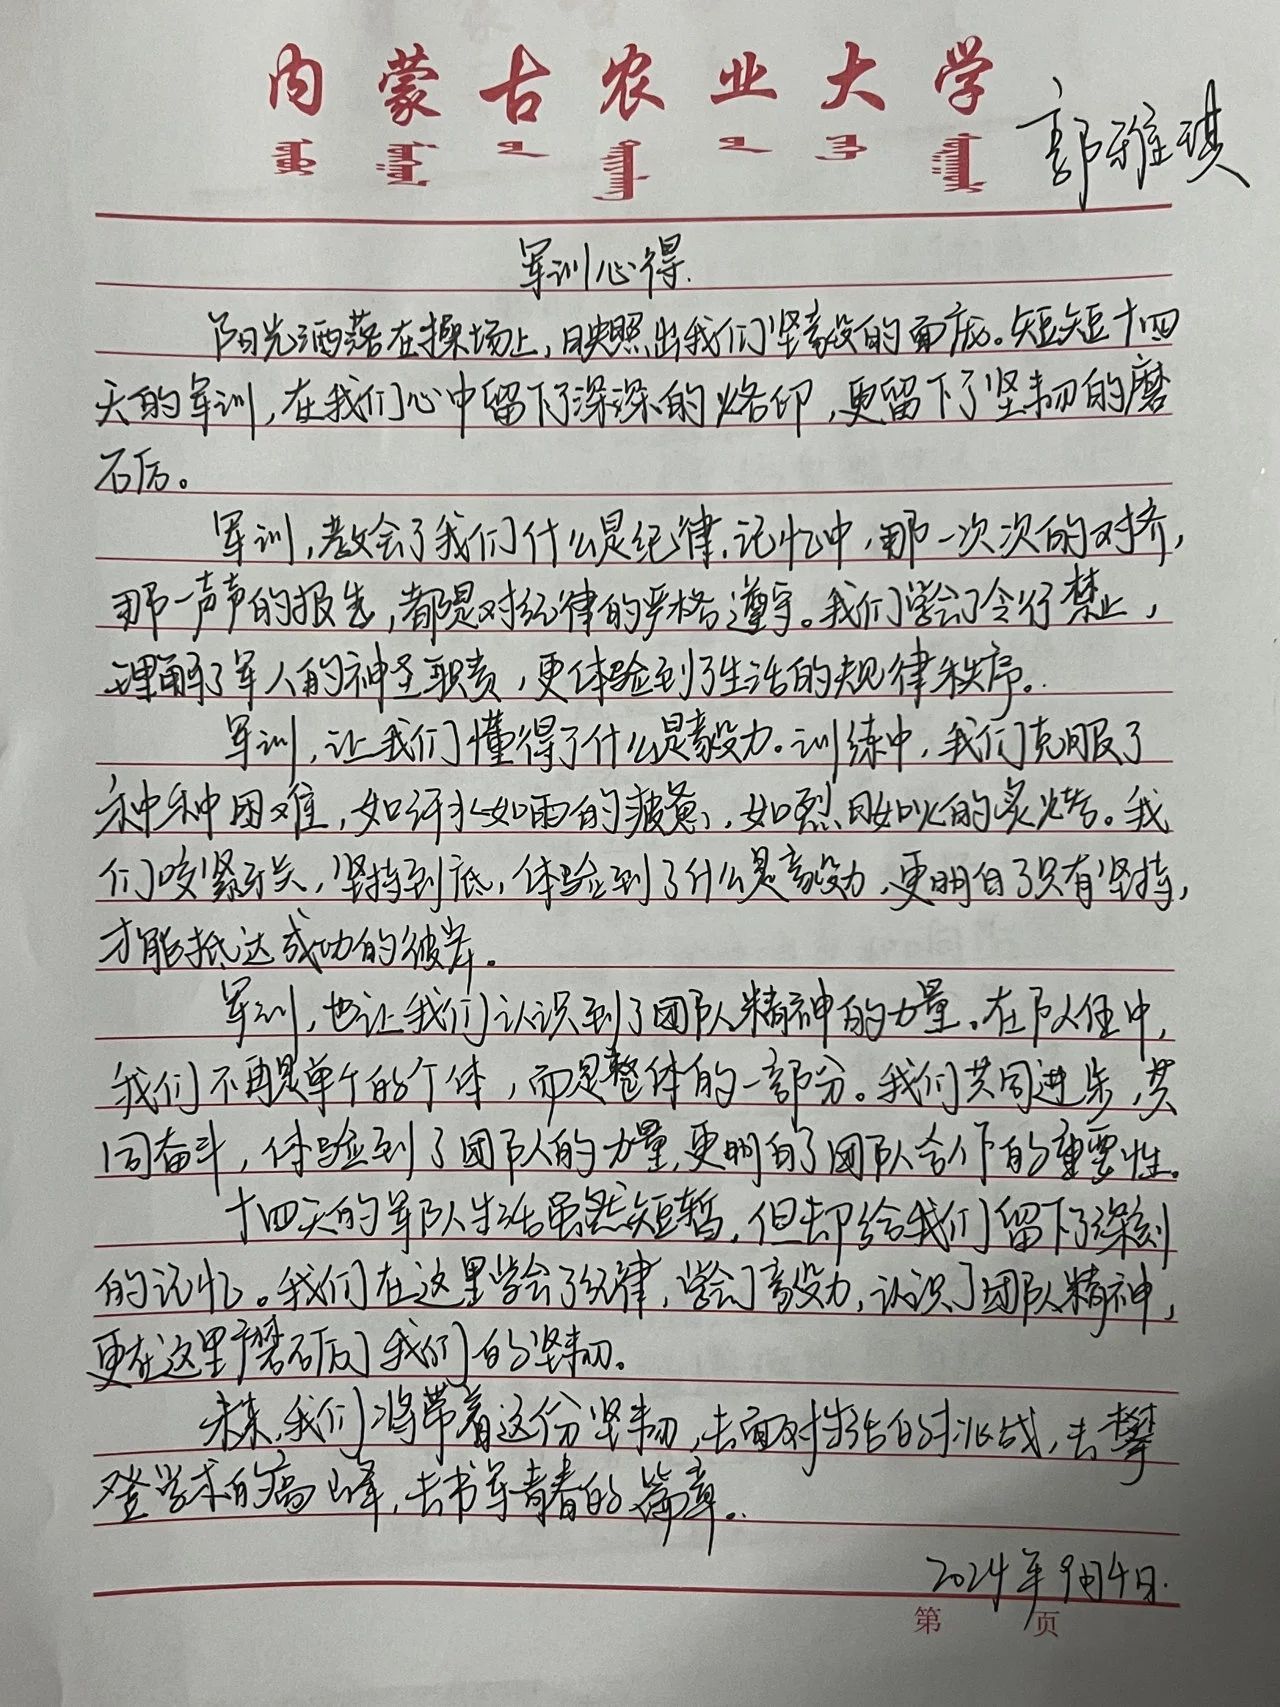 内蒙古农业大学
郭雅琪
军训心得.
阳光洒落在操场上,映照出我们坚毅的面庞。短短十四
天的军训,在我们心中留下了深深的烙印,更留下了坚韧的磨
石厉。
军训,教会了我们什么是纪律,记忆中,那一次次的对齐,
那一声声的报告,都是对纪律的严格遵守。我们学会了令行禁止,
理解了军人的神圣职责,更体验到了生活的规律秩序。
军训,让我们懂得了什么是毅力。训练中,我们克服了
种种困难,如汗水如雨的疲惫,如烈日如火的炙烤。我
们咬紧牙关,坚持到底,体验到了什么是毅力,更明白了只有坚持,
才能抵达成功的彼岸。
军训,也让我们认识到了团队精神的力量。在队伍中,
我们不再是单个的个体,而是整体的一部分。我们共同进步,共
同奋斗,体验到了团队的力量,更明白了团队合作的重要性。
十四天的军队生活虽然短暂,但却给我们留下了深刻
的记忆。我们在这里学会了纪律,学会了毅力,认识了团队精神,
更在这里磨砺了我们的坚韧。
未来,我们将带着这份坚韧,去面对生活的挑战,去攀
登学术的高峰,去书写青春的篇章。
2024年9月4日.
第 页